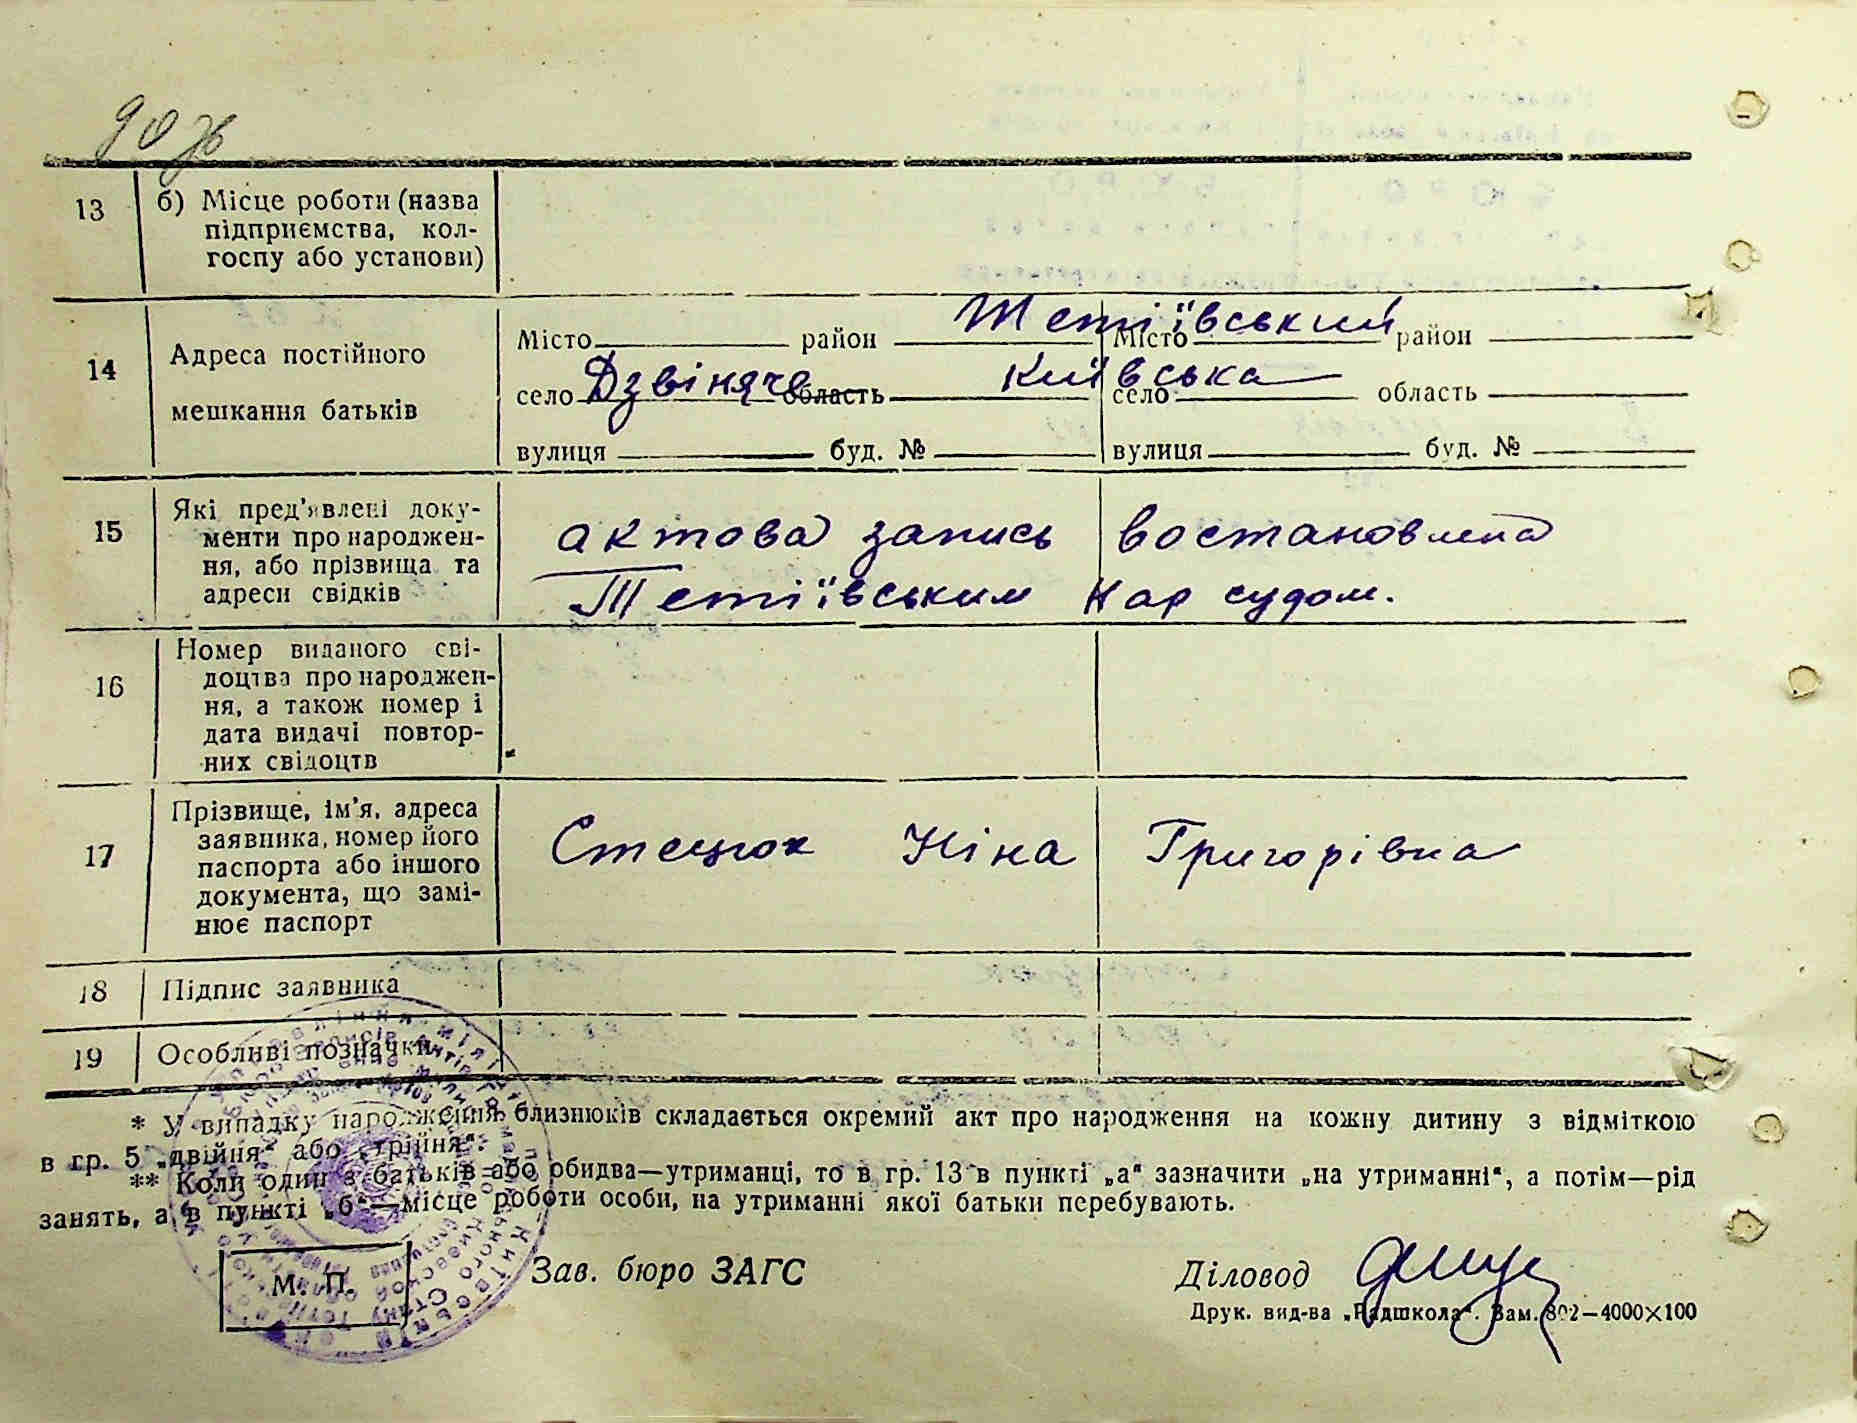 13 б) Місце роботи (назва
підприємства, кол-
госпу або установи)
14 Адреса постійного
мешкання батьків
Місто район Тетіївський Місто район
село Дзвіняче область Київська село область
вулиця буд. № вулиця буд. №
15 Які пред'явлені доку-
менти про народжен-
ня, або прізвища та
адреси свідків
актова запись востановлена
Тетіївським Нар судом.
16 Номер виданого сві-
доцтва про народжен-
ня, а також номер і
дата видачі повтор-
них свідоцтв
17 Прізвище, ім'я, адреса
заявника, номер його
паспорта або іншого
документа, що замі-
нює паспорт
Стецюк Ніна Григорівна
18 Підпис заявника
19 Особливі позначки
* У випадку народження близнюків складається окремий акт про народження на кожну дитину з відміткою
в гр. 5 „двійня“ або „трійня“.
** Коли один з батьків або обидва—утриманці, то в гр. 13 в пункті „а“ зазначити „на утриманні“, а потім—рід
занять, а в пункті „б“—місце роботи особи, на утриманні якої батьки перебувають.
М. П. Зав. бюро ЗАГС Діловод
Друк. вид-ва „Радшкола“. Зам. 802—4000×100